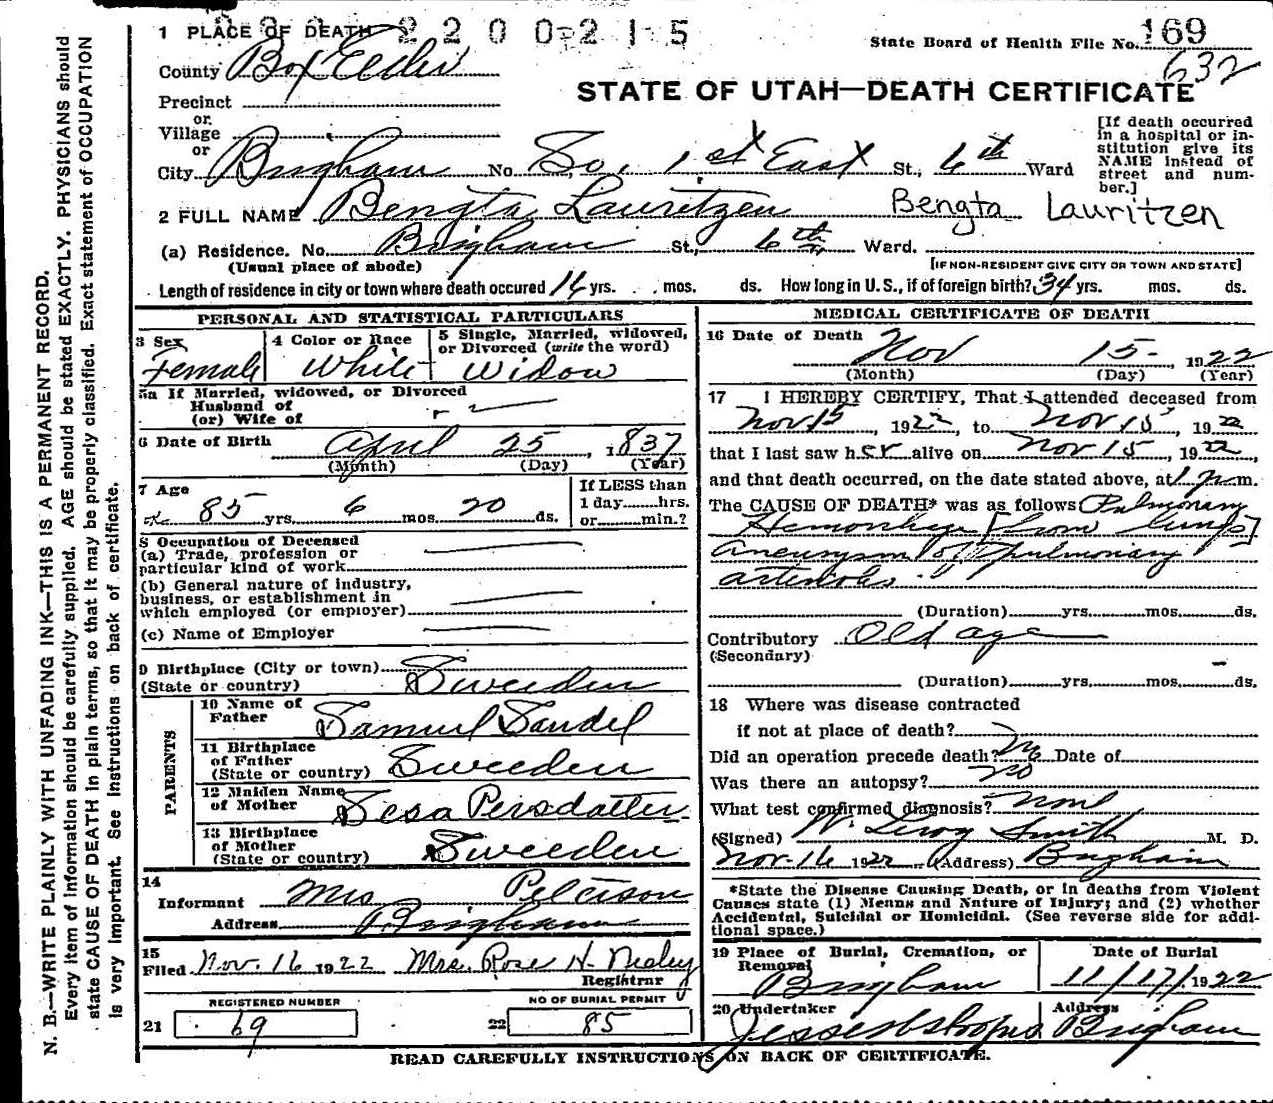 8 2 2 2 2 0 0 2 1 5
1 PLACE OF DEATH
State Board of Health File No. 169
632
County Box Elder
STATE OF UTAH—DEATH CERTIFICATE
Precinct
or
Village
or
City Brigham No. So. 1st East St., 6th Ward
[If death occurred in a hospital or institution give its NAME instead of street and number.]
2 FULL NAME Bengta Lauritzen Bengta Lauritzen
(a) Residence. No. Brigham St., 6th Ward.
(Usual place of abode)
[IF NON-RESIDENT GIVE CITY OR TOWN AND STATE]
Length of residence in city or town where death occured 14 yrs. mos. ds. How long in U. S., if of foreign birth? 34 yrs. mos. ds.
PERSONAL AND STATISTICAL PARTICULARS
3 Sex
Female
4 Color or Race
White
5 Single, Married, widowed, or Divorced (write the word)
Widow
5a If Married, widowed, or Divorced
Husband of
(or) Wife of
6 Date of Birth April 25, 1837
(Month) (Day) (Year)
7 Age
85 yrs. 6 mos. 20 ds.
If LESS than
1 day hrs.
or min.?
8 Occupation of Deceased
(a) Trade, profession or
particular kind of work
(b) General nature of industry,
business, or establishment in
which employed (or employer)
(c) Name of Employer
9 Birthplace (City or town)
(State or country) Sweeden
PARENTS
10 Name of
Father Samuel Sandel
11 Birthplace
of Father
(State or country) Sweeden
12 Maiden Name
of Mother Sesa Persdatter
13 Birthplace
of Mother
(State or country) Sweeden
14
Informant Mrs Peterson
Address Brigham
15
Filed Nov. 16 1922 Mrs. Rose H. Neeley
Registrar
REGISTERED NUMBER
21 69
NO OF BURIAL PERMIT
22 85
MEDICAL CERTIFICATE OF DEATH
16 Date of Death
Nov 15 1922
(Month) (Day) (Year)
17 I HEREBY CERTIFY, That I attended deceased from
Nov 15, 1922, to Nov 15, 1922,
that I last saw her alive on Nov 15, 1922,
and that death occurred, on the date stated above, at 1 P. m.
The CAUSE OF DEATH* was as follows Pulmonary
Hemorrhage [from lungs]
aneurysm of pulmonary
arterioles.
(Duration) yrs. mos. ds.
Contributory Old age
(Secondary)
(Duration) yrs. mos. ds.
18 Where was disease contracted
if not at place of death?
Did an operation precede death? No Date of
Was there an autopsy? No
What test confirmed diagnosis? None
(Signed) W. Leroy Smith M. D.
Nov. 16 1922 (Address) Brigham
*State the Disease Causing Death, or in deaths from Violent
Causes state (1) Means and Nature of Injury; and (2) whether
Accidental, Suicidal or Homicidal. (See reverse side for addi-
tional space.)
19 Place of Burial, Cremation, or
Removal
Brigham
Date of Burial
11/17/1922
20 Undertaker
Address
Brigham
READ CAREFULLY INSTRUCTIONS ON BACK OF CERTIFICATE.
N. B.—WRITE PLAINLY WITH UNFADING INK—THIS IS A PERMANENT RECORD.
Every item of information should be carefully supplied. AGE should be stated EXACTLY. PHYSICIANS should
state CAUSE OF DEATH in plain terms, so that it may be properly classified. Exact statement of OCCUPATION
is very important. See Instructions on back of certificate.